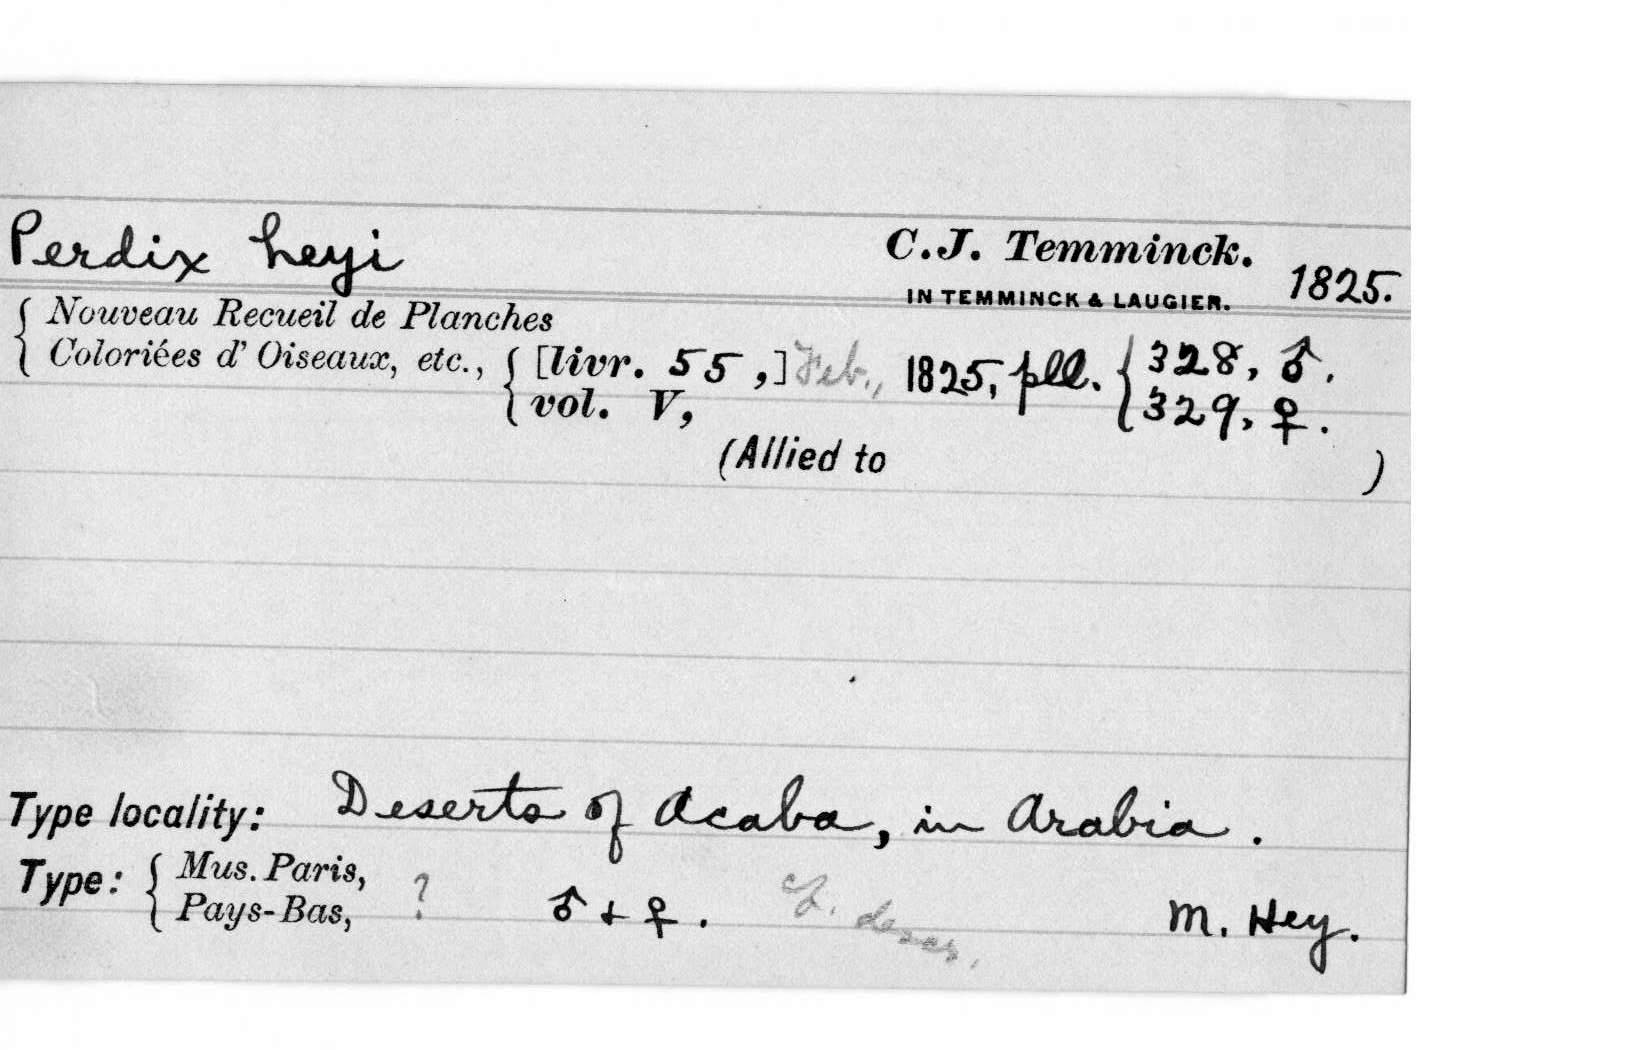 Perdix heyi C.J. Temminck. 1825.
IN TEMMINCK & LAUGIER.
{ Nouveau Recueil de Planches
Coloriées d' Oiseaux, etc., { [livr. 55,] Feb., 1825, pll. { 328, ♂.
vol. V, 329, ♀.
(Allied to )
Type locality: Deserts of Acaba, in Arabia.
Type: { Mus. Paris,
Pays-Bas, ? ♂ + ♀. M. Hey.